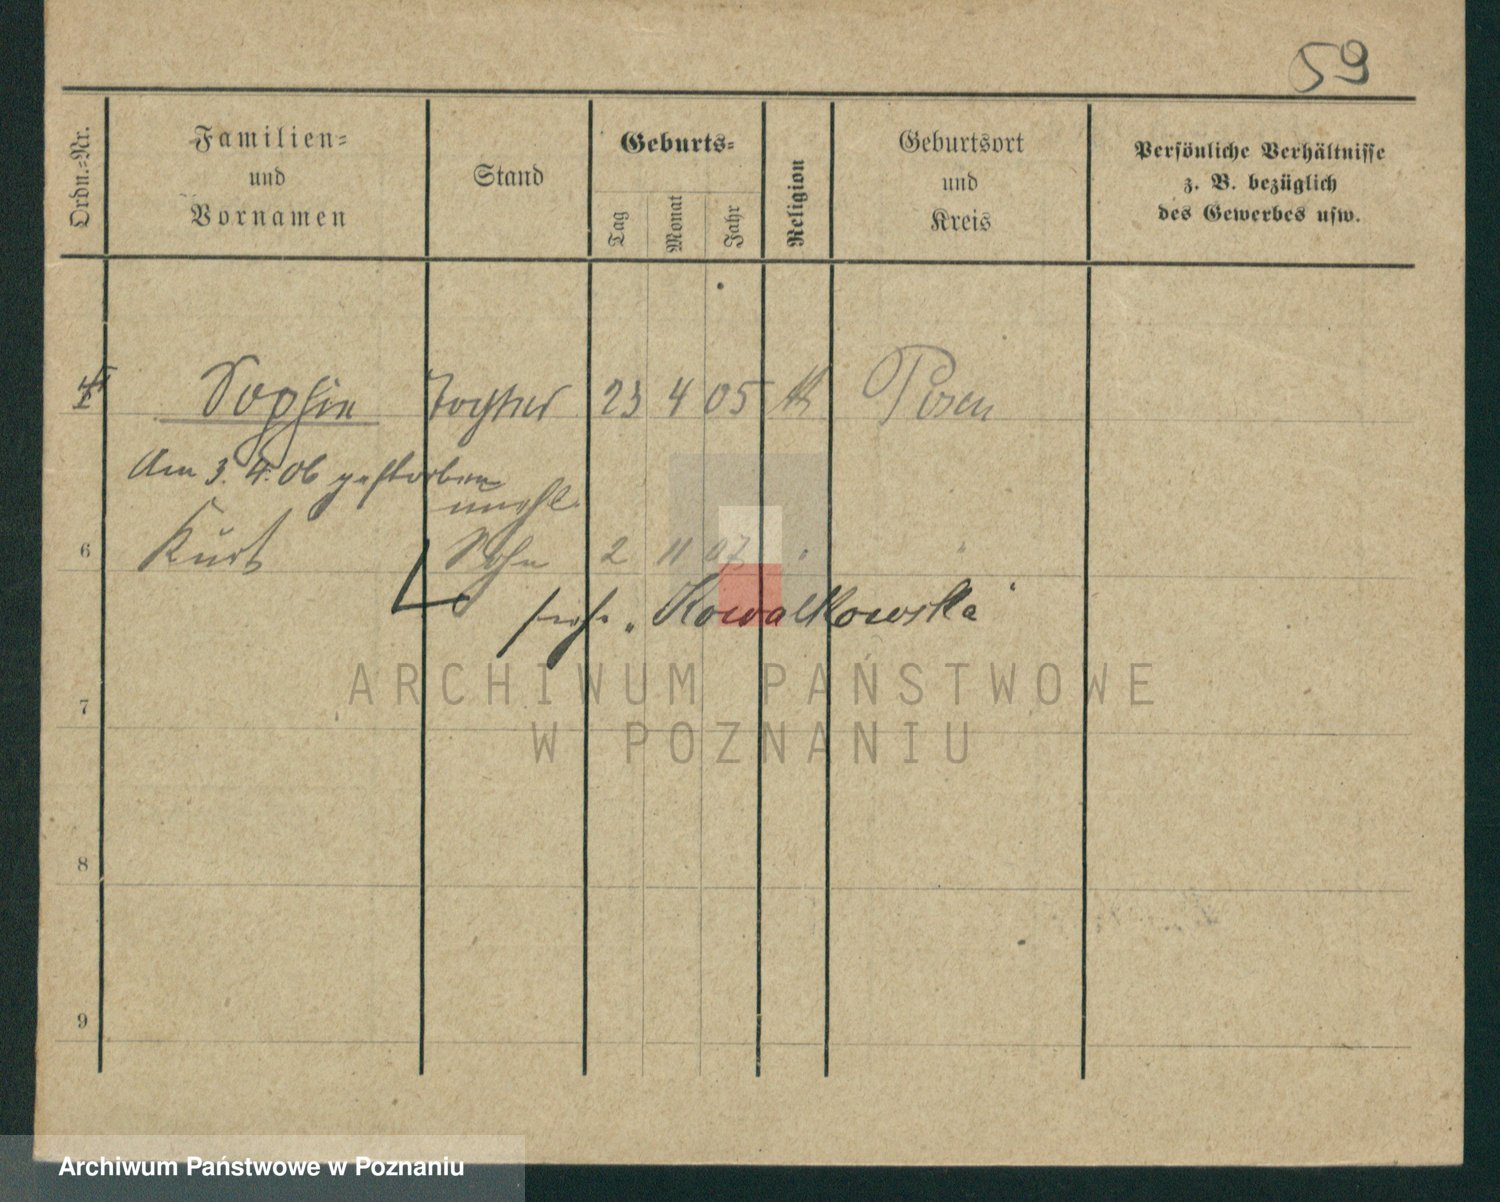 59
Ordn.=Nr.
Familien=
und
Vornamen
Stand
Geburts=
Tag
Monat
Jahr
Religion
Geburtsort
und
Kreis
Persönliche Verhältnisse
z. B. bezüglich
des Gewerbes usw.
Sophie Tochter 23 4 05 Posen
Am 3. 4. 06 gestorben
unehl.
6 Kurt Sohn 2 11 07 " "
„Kowalkowska“
ARCHIWUM PAŃSTWOWE
7
W POZNANIU
8
9
Archiwum Państwowe w Poznaniu